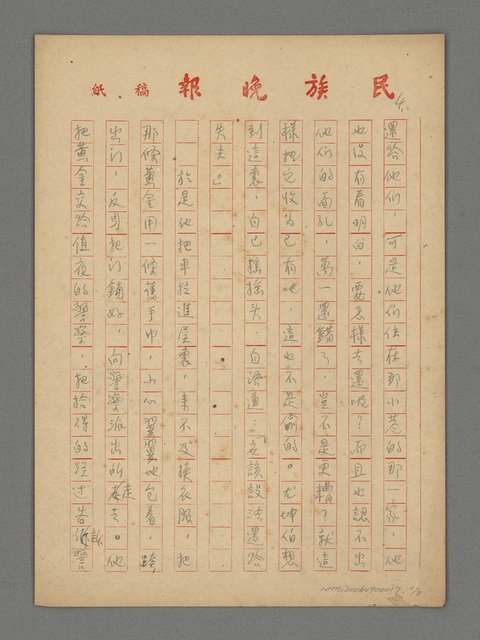 民族晚報 稿紙
4.
還給他們,可是他們住在那小巷的那一家,他
也沒有看明白,要怎樣去還呢?而且也認不出
他們的面孔,萬一還錯了,豈不是更糟?就這
樣把它收為己有吧,這也不是偷的。尤坤伯想
到這裏,自己搖搖头,自語道:「應該設法還給
失主」。
於是他把車拉進屋裏,來不及換衣服,把
那條黃金用一條舊手巾,小心翼翼地包着,跨
出门,反身把门鎖好,向警察派出所走去。他
把黃金交給值夜的警察,把拾得的經过告訴警